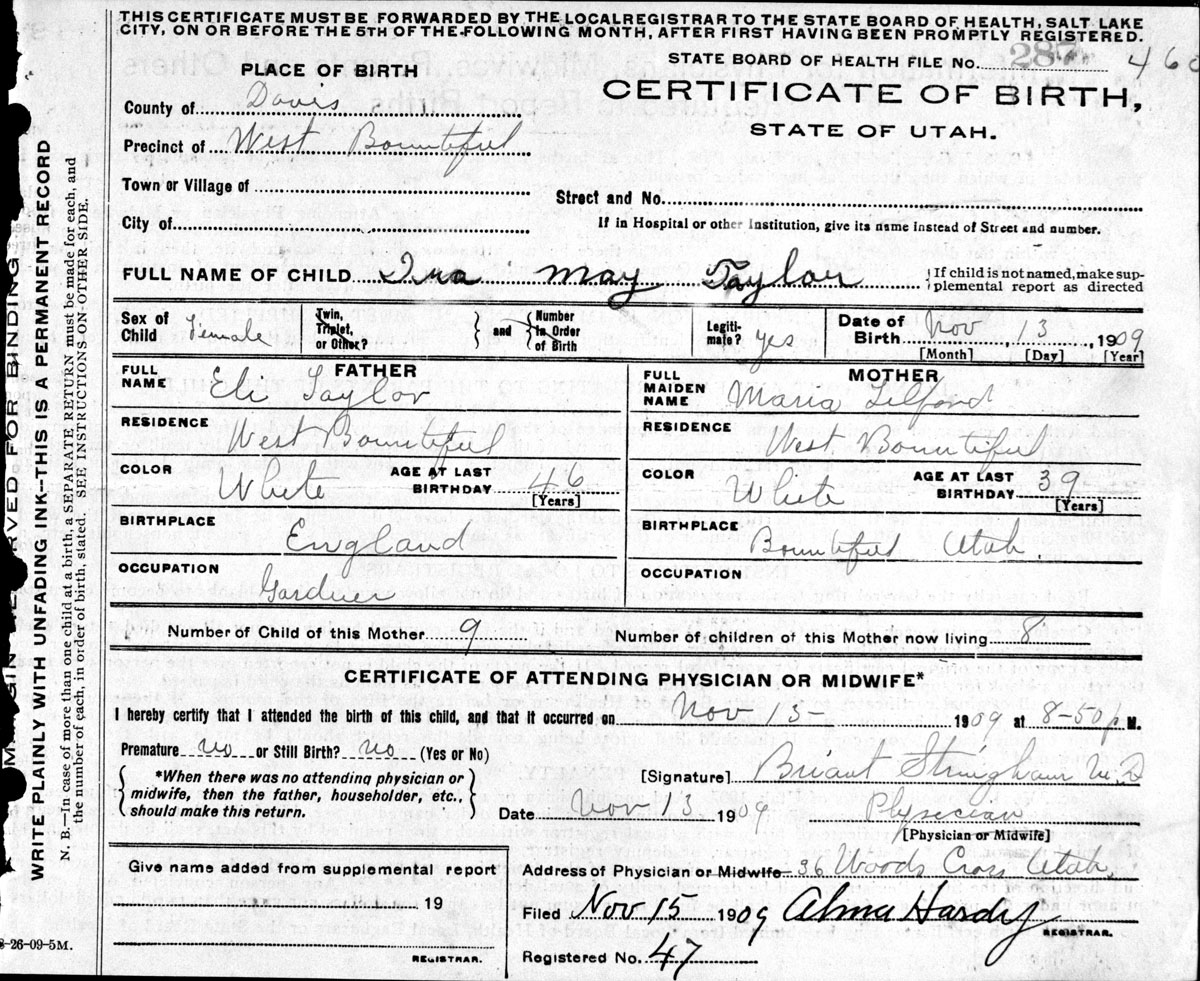 THIS CERTIFICATE MUST BE FORWARDED BY THE LOCAL REGISTRAR TO THE STATE BOARD OF HEALTH, SALT LAKE
CITY, ON OR BEFORE THE 5TH OF THE FOLLOWING MONTH, AFTER FIRST HAVING BEEN PROMPTLY REGISTERED.
STATE BOARD OF HEALTH FILE No. 287 460
PLACE OF BIRTH
CERTIFICATE OF BIRTH,
STATE OF UTAH.
County of Davis
Precinct of West Bountiful
Town or Village of
Street and No.
City of
If in Hospital or other Institution, give its name instead of Street and number.
FULL NAME OF CHILD Iva May Taylor
If child is not named, make supplemental report as directed
Sex of Child Female
Twin, Triplet, or Other?
and
Number in Order of Birth
Legitimate? yes
Date of Birth Nov 13, 1909
[Month] [Day] [Year]
FATHER
FULL NAME Eli Taylor
RESIDENCE West Bountiful
COLOR White AGE AT LAST BIRTHDAY 46 [Years]
BIRTHPLACE England
OCCUPATION Gardner
MOTHER
FULL MAIDEN NAME Maria Tilford
RESIDENCE West Bountiful
COLOR White AGE AT LAST BIRTHDAY 39 [Years]
BIRTHPLACE Bountiful Utah
OCCUPATION
Number of Child of this Mother 9 Number of children of this Mother now living 8
CERTIFICATE OF ATTENDING PHYSICIAN OR MIDWIFE*
I hereby certify that I attended the birth of this child, and that it occurred on Nov 13- 1909 at 8-50 p. M.
Premature no or Still Birth? no (Yes or No)
*When there was no attending physician or
midwife, then the father, householder, etc.,
should make this return.
[Signature] Briant Stringham M.D
Date Nov 13, 1909 Physecian
[Physician or Midwife]
Give name added from supplemental report
19
REGISTRAR.
Address of Physician or Midwife 36 Woods Cross Utah.
Filed Nov 15 1909 Alma Hardy
REGISTRAR.
Registered No. 47
WRITE PLAINLY WITH UNFADING INK--THIS IS A PERMANENT RECORD
N. B.—In case of more than one child at a birth, a SEPARATE RETURN must be made for each, and
the number of each, in order of birth, stated. SEE INSTRUCTIONS ON OTHER SIDE.
-26-09-5M.